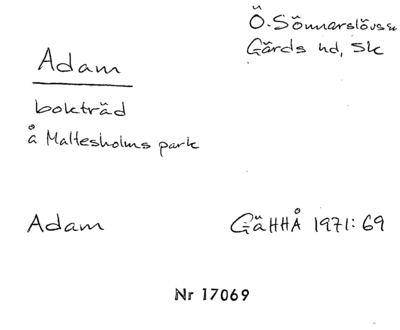 Ö. Sönnarslövs sn
Gärds hd, Sk
Adam
bokträd
å Maltesholms park
Adam
GäHHÅ 1971: 69
Nr 17069